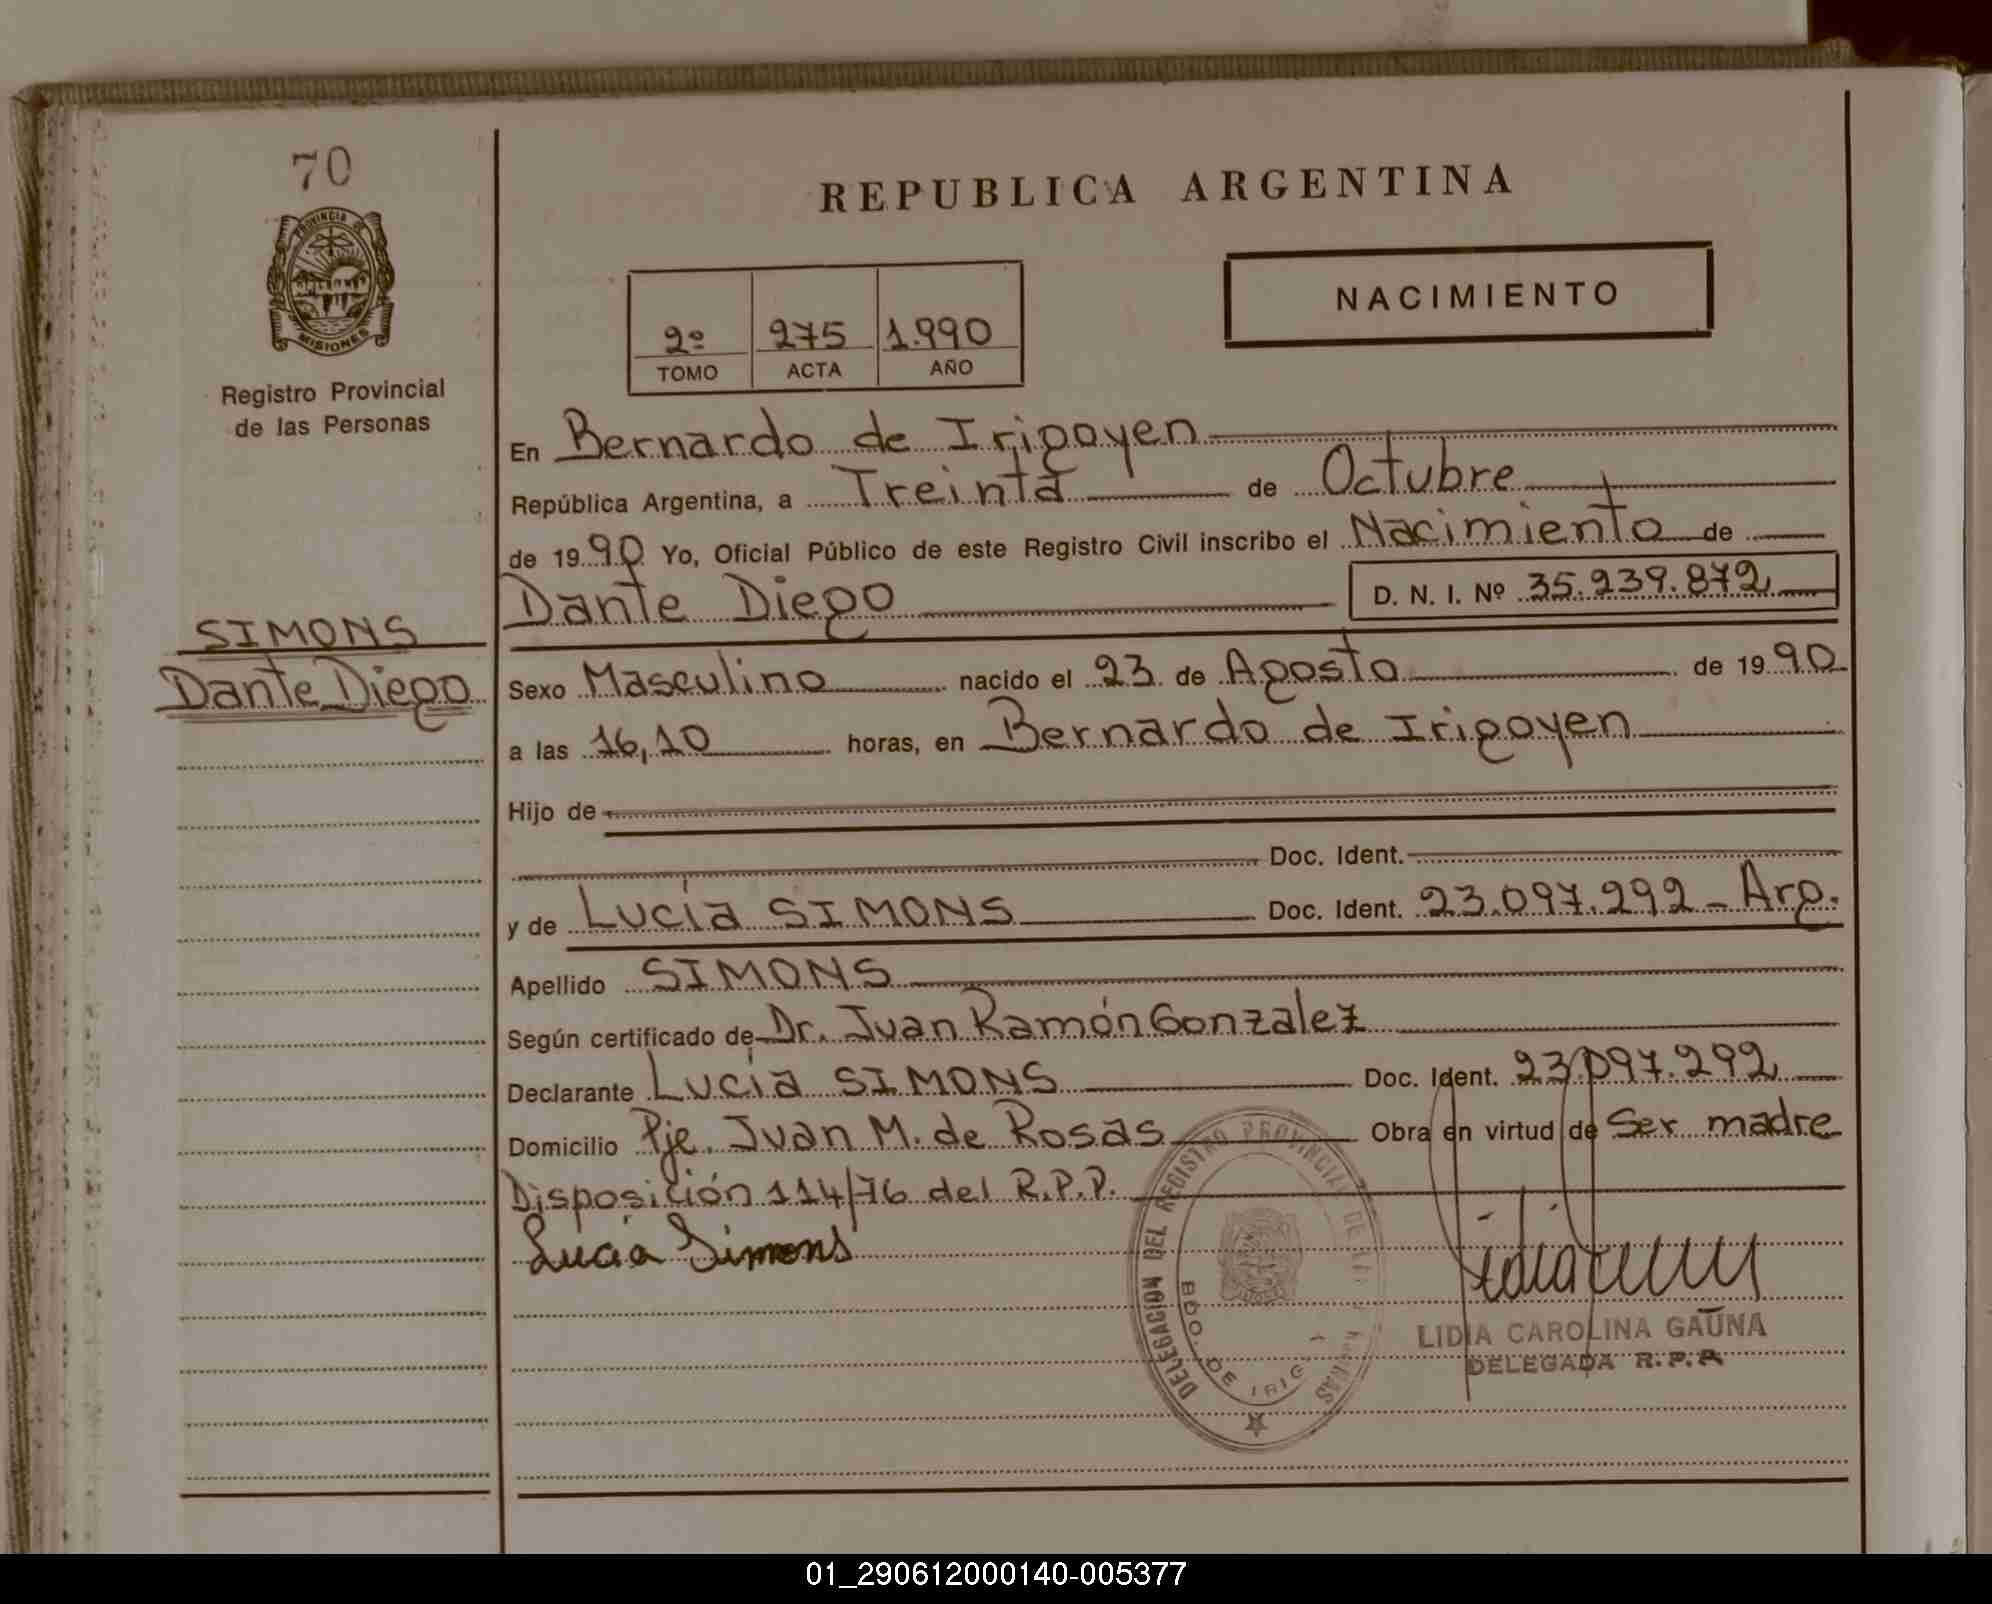 70
REPUBLICA ARGENTINA
PROVINCIA DE
MISIONES
Registro Provincial
de las Personas
NACIMIENTO
2º 275 1.990
TOMO ACTA AÑO
En Bernardo de Irigoyen
República Argentina, a Treinta de Octubre
de 1990 Yo, Oficial Público de este Registro Civil inscribo el Nacimiento de
Dante Diego D. N. I. Nº 35.239.872
SIMONS
Dante Diego
Sexo Masculino nacido el 23 de Agosto de 1990
a las 16,10 horas, en Bernardo de Irigoyen
Hijo de
Doc. Ident.
y de Lucía SIMONS Doc. Ident. 23.097.292 - Arg.
Apellido SIMONS
Según certificado de Dr. Juan Ramón Gonzalez
Declarante Lucía SIMONS Doc. Ident. 23.097.292
Domicilio Pje. Juan M. de Rosas Obra en virtud de Ser madre
Disposición 114/76 del R.P.P.
Lucia Simons
DELEGACION DEL REGISTRO PROVINCIAL DE LAS PERSONAS
BDO. DE IRIG
LIDIA CAROLINA GAUNA
DELEGADA R.P.P.
01_290612000140-005377